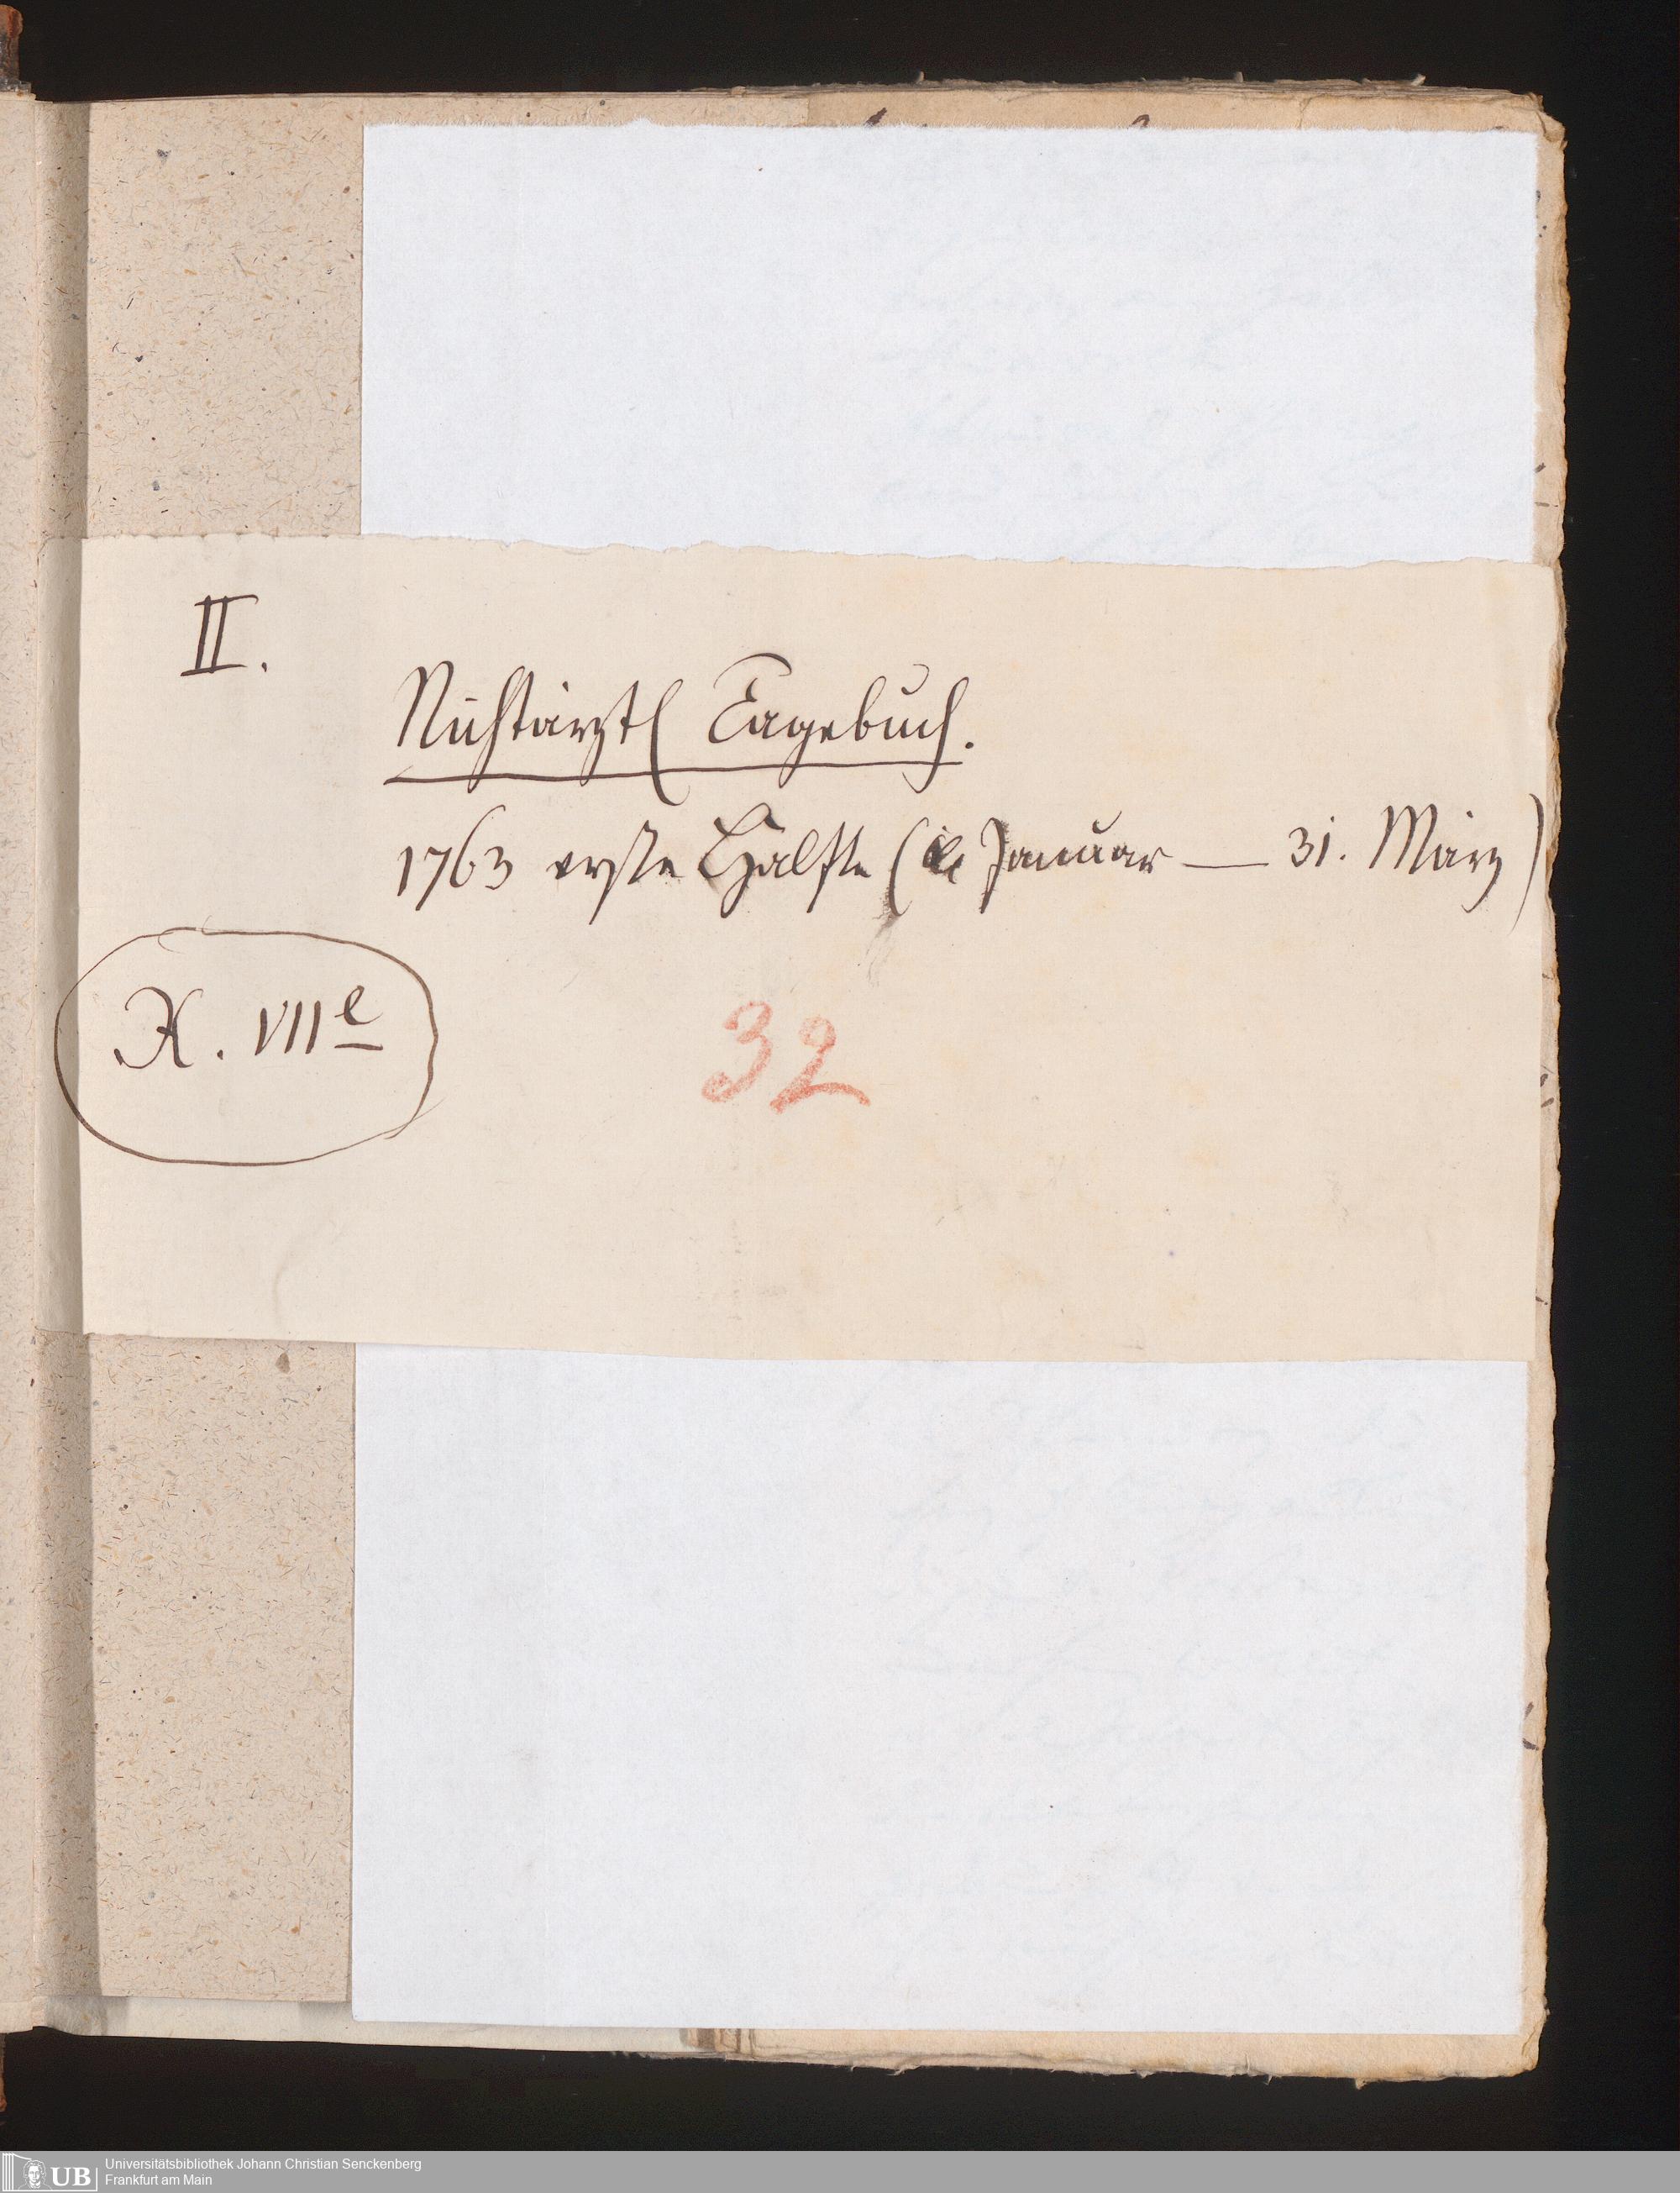 II.
Nichtärztl Tagebuch.
1763 erste Hälfte ( Januar — 31. März)
K. VII e
32
UB Universitätsbibliothek Johann Christian Senckenberg
Frankfurt am Main